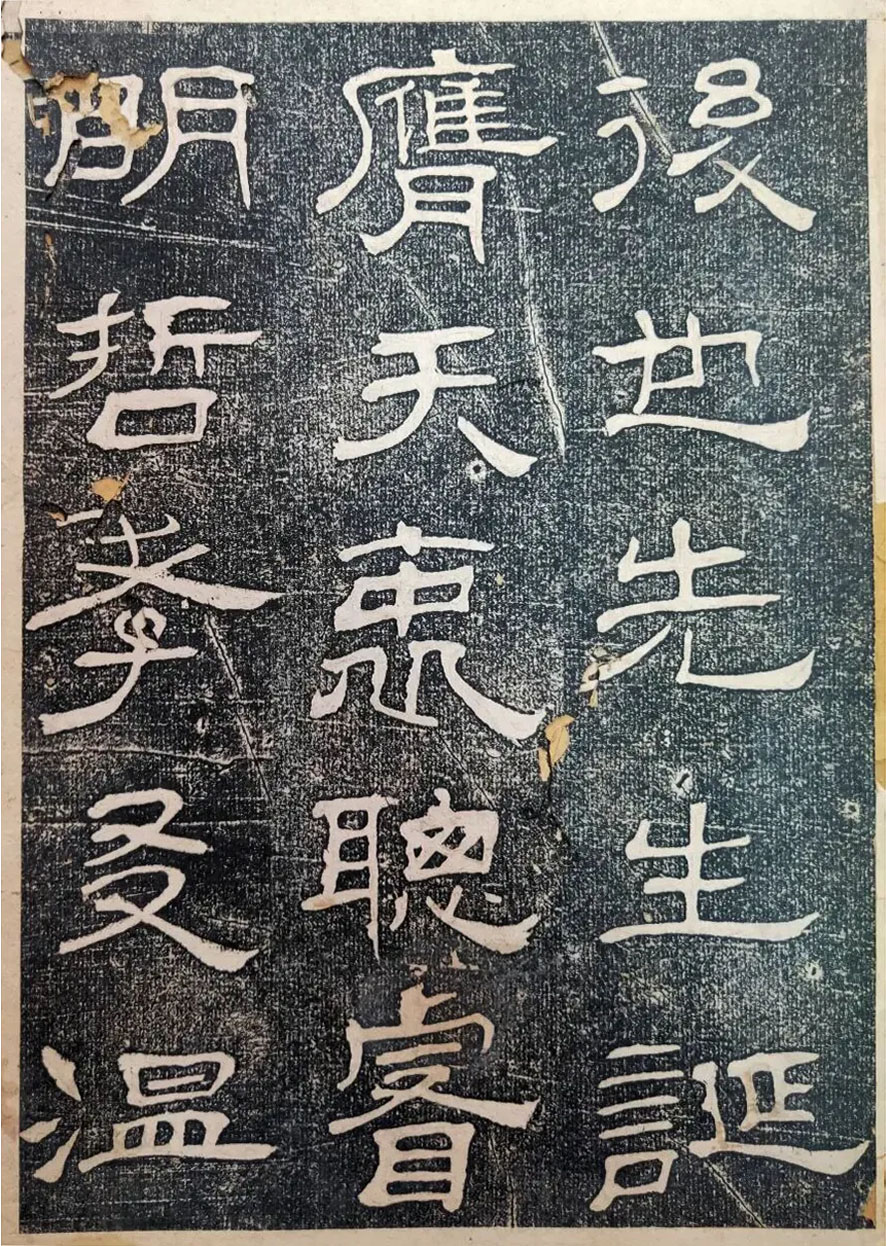 後也先生誕
膺天衷聰睿
明哲孝友温